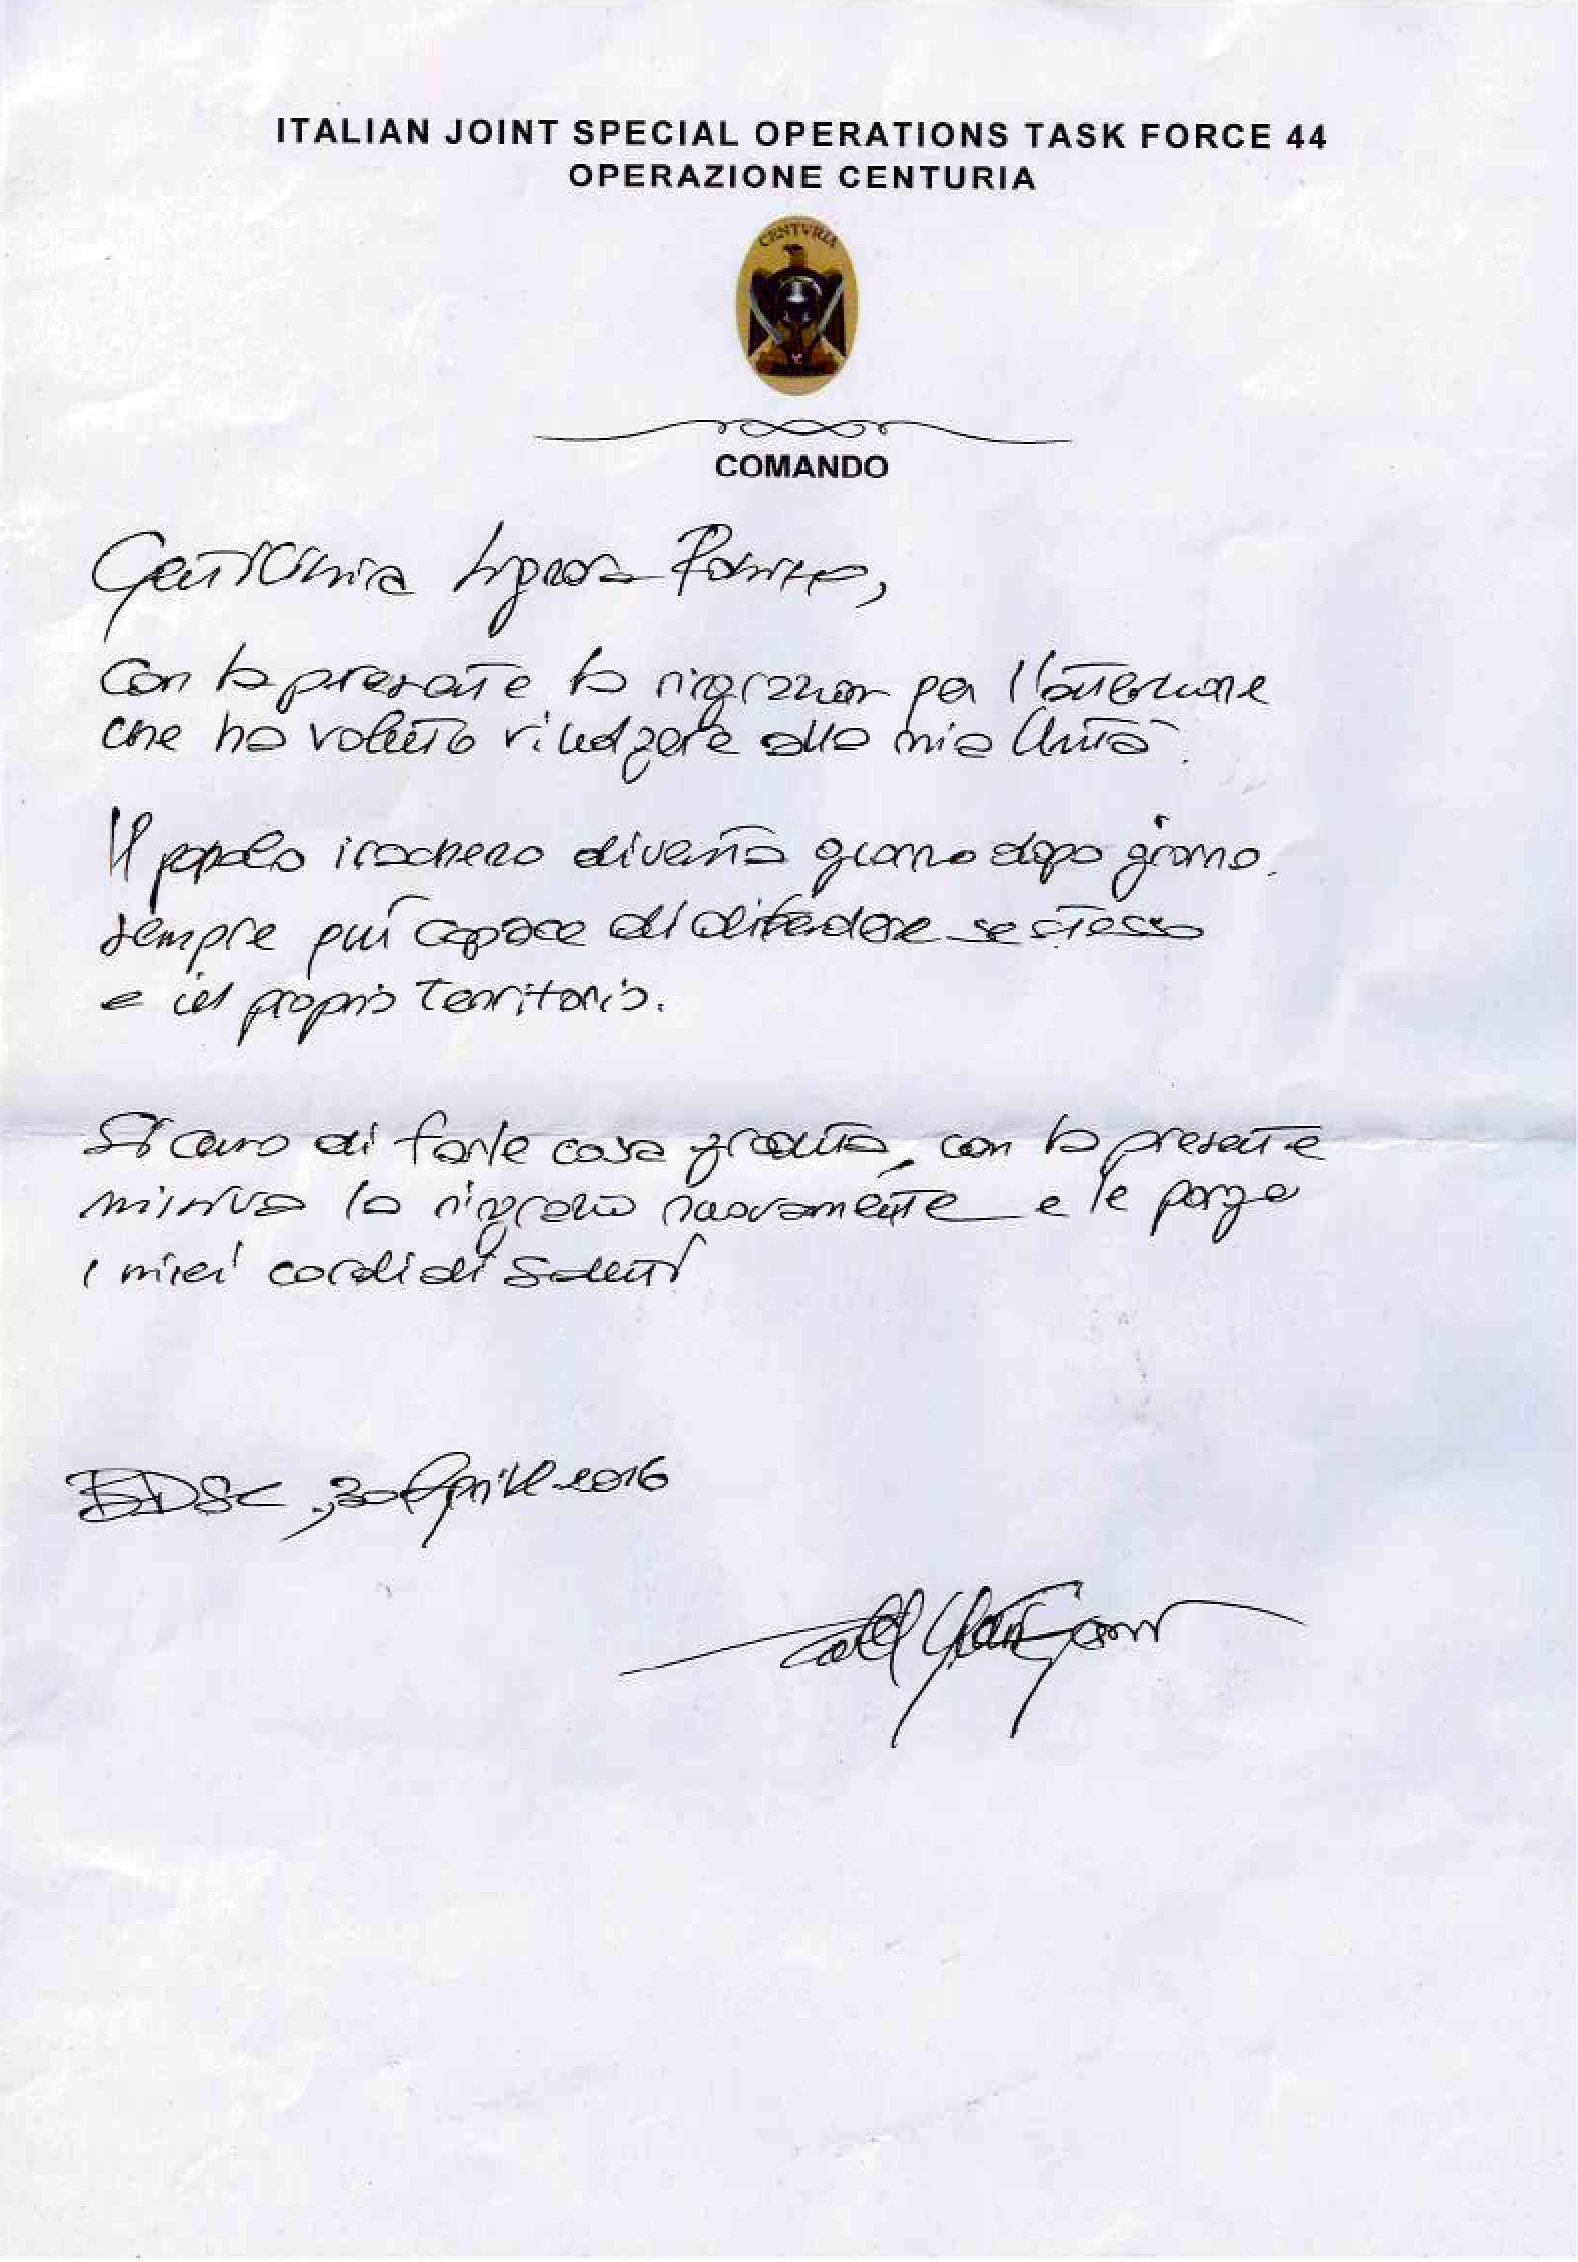 ITALIAN JOINT SPECIAL OPERATIONS TASK FORCE 44
OPERAZIONE CENTURIA
CENTVRIA
COMANDO
Gentilissima Signora
con la presente la ringrazio per l'attenzione
che ha voluto rivolgere alla mia Unità.
Il popolo iracheno diventa giorno dopo giorno
sempre più capace di difendere se stesso
e il proprio territorio.
Sicuro di farle cosa gradita, con la presente
missiva la ringrazio nuovamente e le porgo
i miei cordiali saluti
BDSC, 30 Aprile 2016